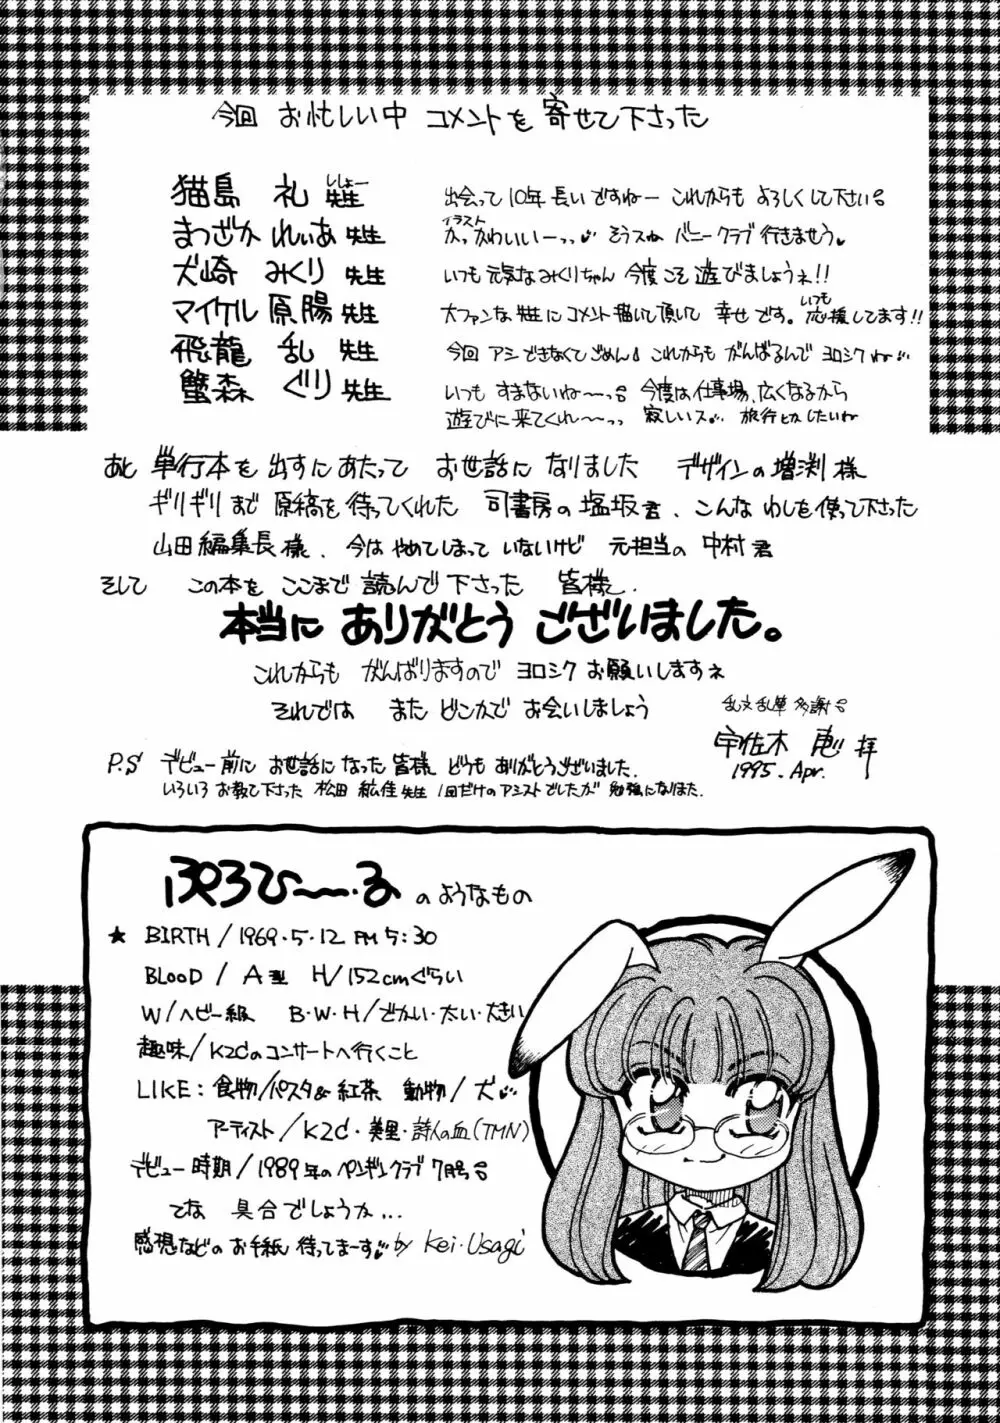 今回 お忙しい中 コメントを 寄せて下さった
猫島 礼 先生 ししょー 出会って 10年 長いですねー これからも よろしくして下さい
まつざか れいあ 先生 イラスト かっ かわいいーっっ そうスね バニークラブ 行きませう
犬崎 みくり 先生 いつも 元気な みくりちゃん 今度こそ 遊びましょうネ!!
マイケル 原腸 先生 大ファンな 先生に コメント 描いて頂いて 幸せです。いつも 応援してます!!
飛龍 乱 先生 今回 アシ できなくて ごめん これからも がんばるんで ヨロシク ね
蟹森 ぐり 先生 いつも すまないね〜〜っ 今度は 仕事場、広くなるから
遊びに来てくれ〜〜っっ 寂しいス 旅行とか したいね
あと 単行本を 出すにあたって お世話に なりました デザインの 増渕 様
ギリギリまで 原稿を 待ってくれた 司書房の 塩坂君、こんな わしを使って下さった
山田編集長様、今は やめてしまって いないけど 元担当の 中村君
そして この本を ここまで 読んで 下さった 皆様、
本当に ありがとう ございました。
これからも がんばりますので ヨロシク お願いしますネ
それでは また どこかで お会いしましょう
乱文乱筆 多謝
宇佐木 恵 拝
1995. Apr.
P.S デビュー前に お世話になった 皆様 どうも ありがとうございました.
いろいろ お教え下さった 松田 紘佳 先生 1回だけの アシストでしたが 勉強になりました.
ぷろひ〜〜る のようなもの
★ BIRTH / 1969・5・12 PM 5:30
BLOOD / A型 H / 152cmぐらい
W / ヘビー級 B・W・H / でかい・太い・大きい
趣味 / K2Cのコンサートへ行くこと
LIKE: 食物 / パスタ& 紅茶 動物 / 犬
アーティスト / K2C・美里・詩人の血 (TMN)
デビュー時期 / 1989年の ペンギンクラブ 7月号
てな 具合でしょうか...
感想などの お手紙 待ってまーす by Kei・Usagi